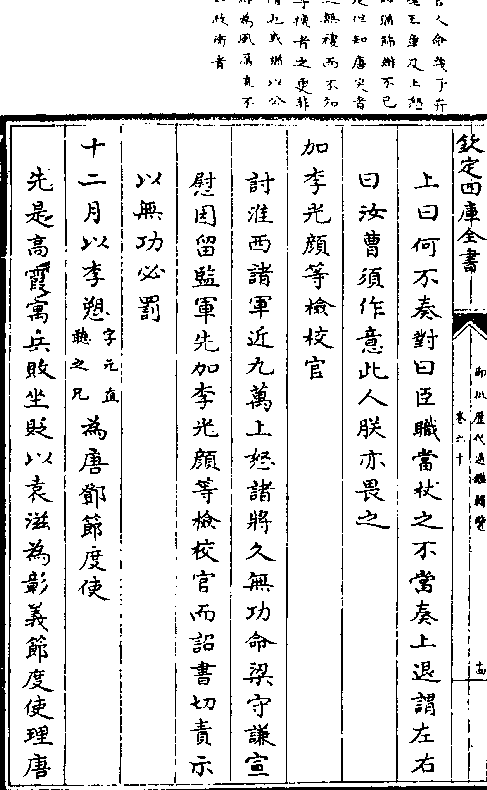 欽定四庫全書
御批歷代通鑑輯覽
卷六十
官人命幾于弁
是但知唐突者
之無禮而不知
者之更非
情也或猶以公
政術者
上曰何不奏對曰臣職當杖之不當奏上退謂左右
曰汝曹須作意此人朕亦畏之
加李光顔等檢校官
討淮西諸軍近九萬上怒諸將久無功命梁守謙宣
慰因留監軍先加李光顔等檢校官而詔書切責示
以無功必罰
十二月以李愬字元直聽之兄為唐鄧節度使
先是高霞寓兵敗坐貶以袁滋為彰義節度使理唐